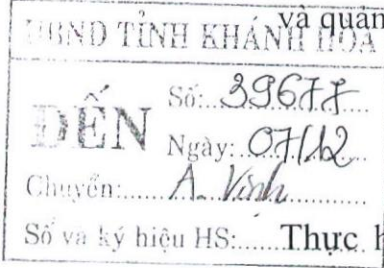 và quản
UBND TỈNH KHÁNH HÒA
ĐẾN
Số: 39677
Ngày: 07/12
Chuyển: A. Vinh
Số và ký hiệu HS: Thực h